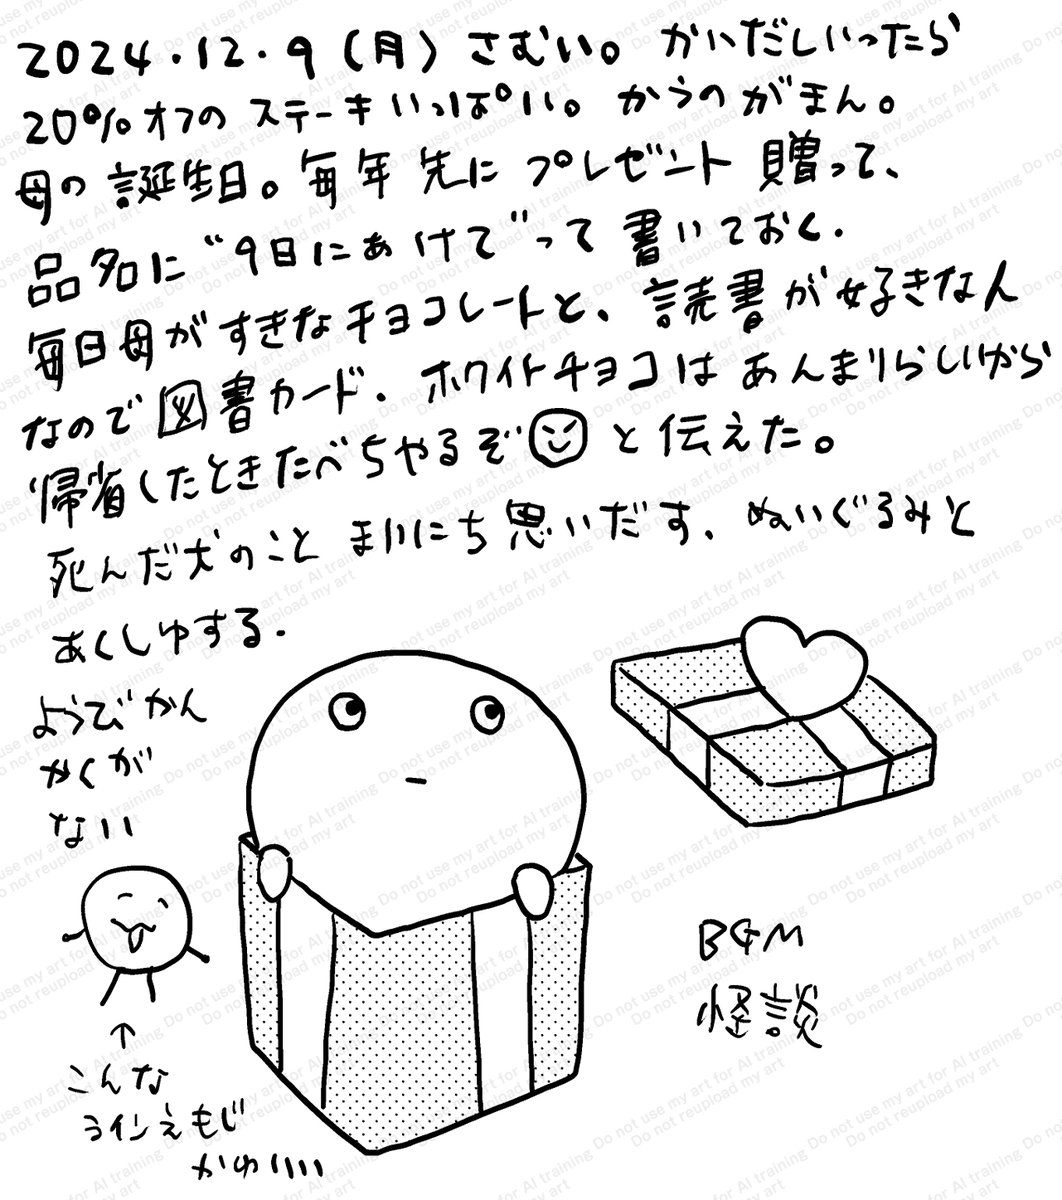 2024.12.9（月）さむい。かいだしいったら
20%オフのステーキいっぱい。かうのがまん。
母の誕生日。毎年先にプレゼント贈って、
品名に“9日にあけて”って書いておく.
毎日母がすきなチョコレートと、読書が好きなん
なので図書カード.ホワイトチョコはあんまりらしいから
帰省したときたべちゃるぞ と伝えた。
死んだ犬のこと まいにち思いだす.ぬいぐるみと
あくしゅする.
ようびかん
かくが
ない
↑
こんな
ラインえもじ
かわいいい
BGM
怪談
Do not use my art for AI training
Do not reupload my art